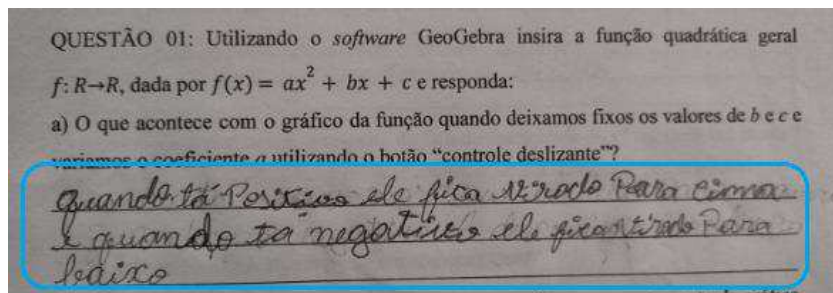 QUESTÃO 01: Utilizando o software GeoGebra insira a função quadrática geral
f: R→R, dada por f(x) = ax² + bx + c e responda:
a) O que acontece com o gráfico da função quando deixamos fixos os valores de b e c e
variamos o coeficiente a utilizando o botão “controle deslizante”?
quando tá Positivo ele fica virado Para cima
e quando ta negativo ele fica virado Para
baixo